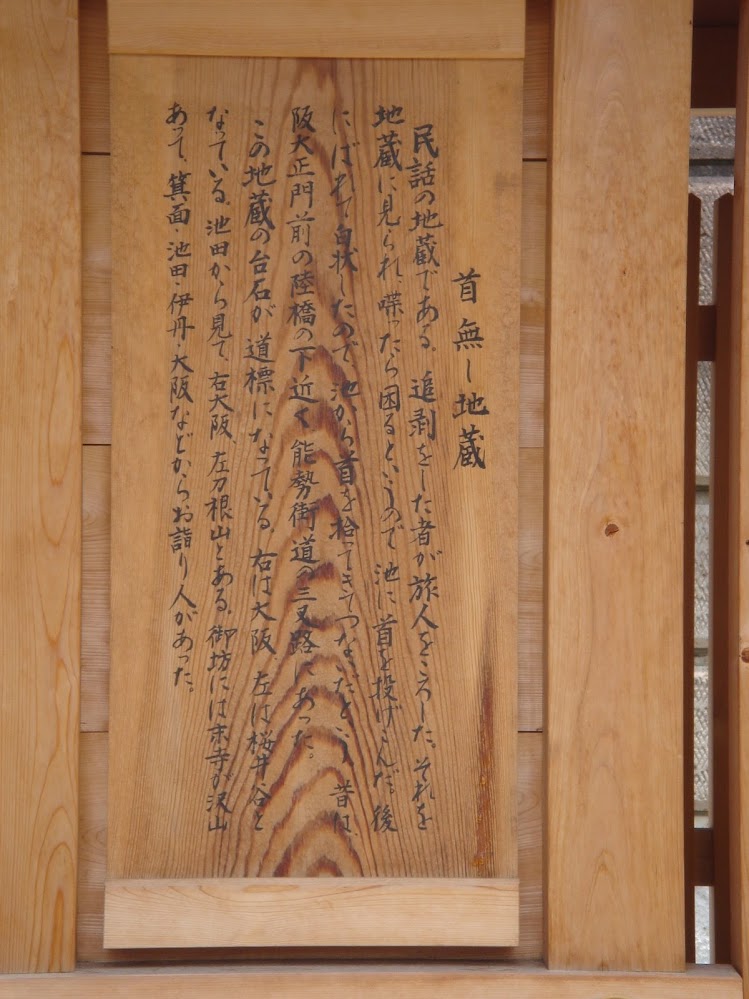 首無し地蔵
民話の地蔵である。追剥をした者が旅人をころした。それを
地蔵に見られ、喋ったら困るというので池に首を投げこんだ。後
にばれて白状したので、池から首を拾ってきてつないだという。昔は、
阪大正門前の陸橋の下近く能勢街道の三叉路にあった。
この地蔵の台石が道標になっている。右は大阪、左は桜井谷と
なっている。池田から見て、右大阪、左刀根山とある。御坊には末寺が沢山
あって、箕面・池田・伊丹・大阪などからお詣り人があった。